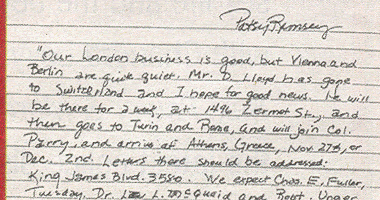 Patsy Ramsey
"Our London business is good, but Vienna and
Berlin are quiet. Mr. D. Lloyd has gone
to Switzerland and I hope for good news. He will
be there for a week, at 1496 Zermot St., and
then goes to Turin and Rome, and will join Col.
Parry, and arrive at Athens, Greece, Nov. 27th, or
Dec. 2nd. Letters there should be addressed:
King James Blvd. 3580. We expect Chas. E. Fuller,
Tuesday. Dr. L. McQuaid and Robt. Unger